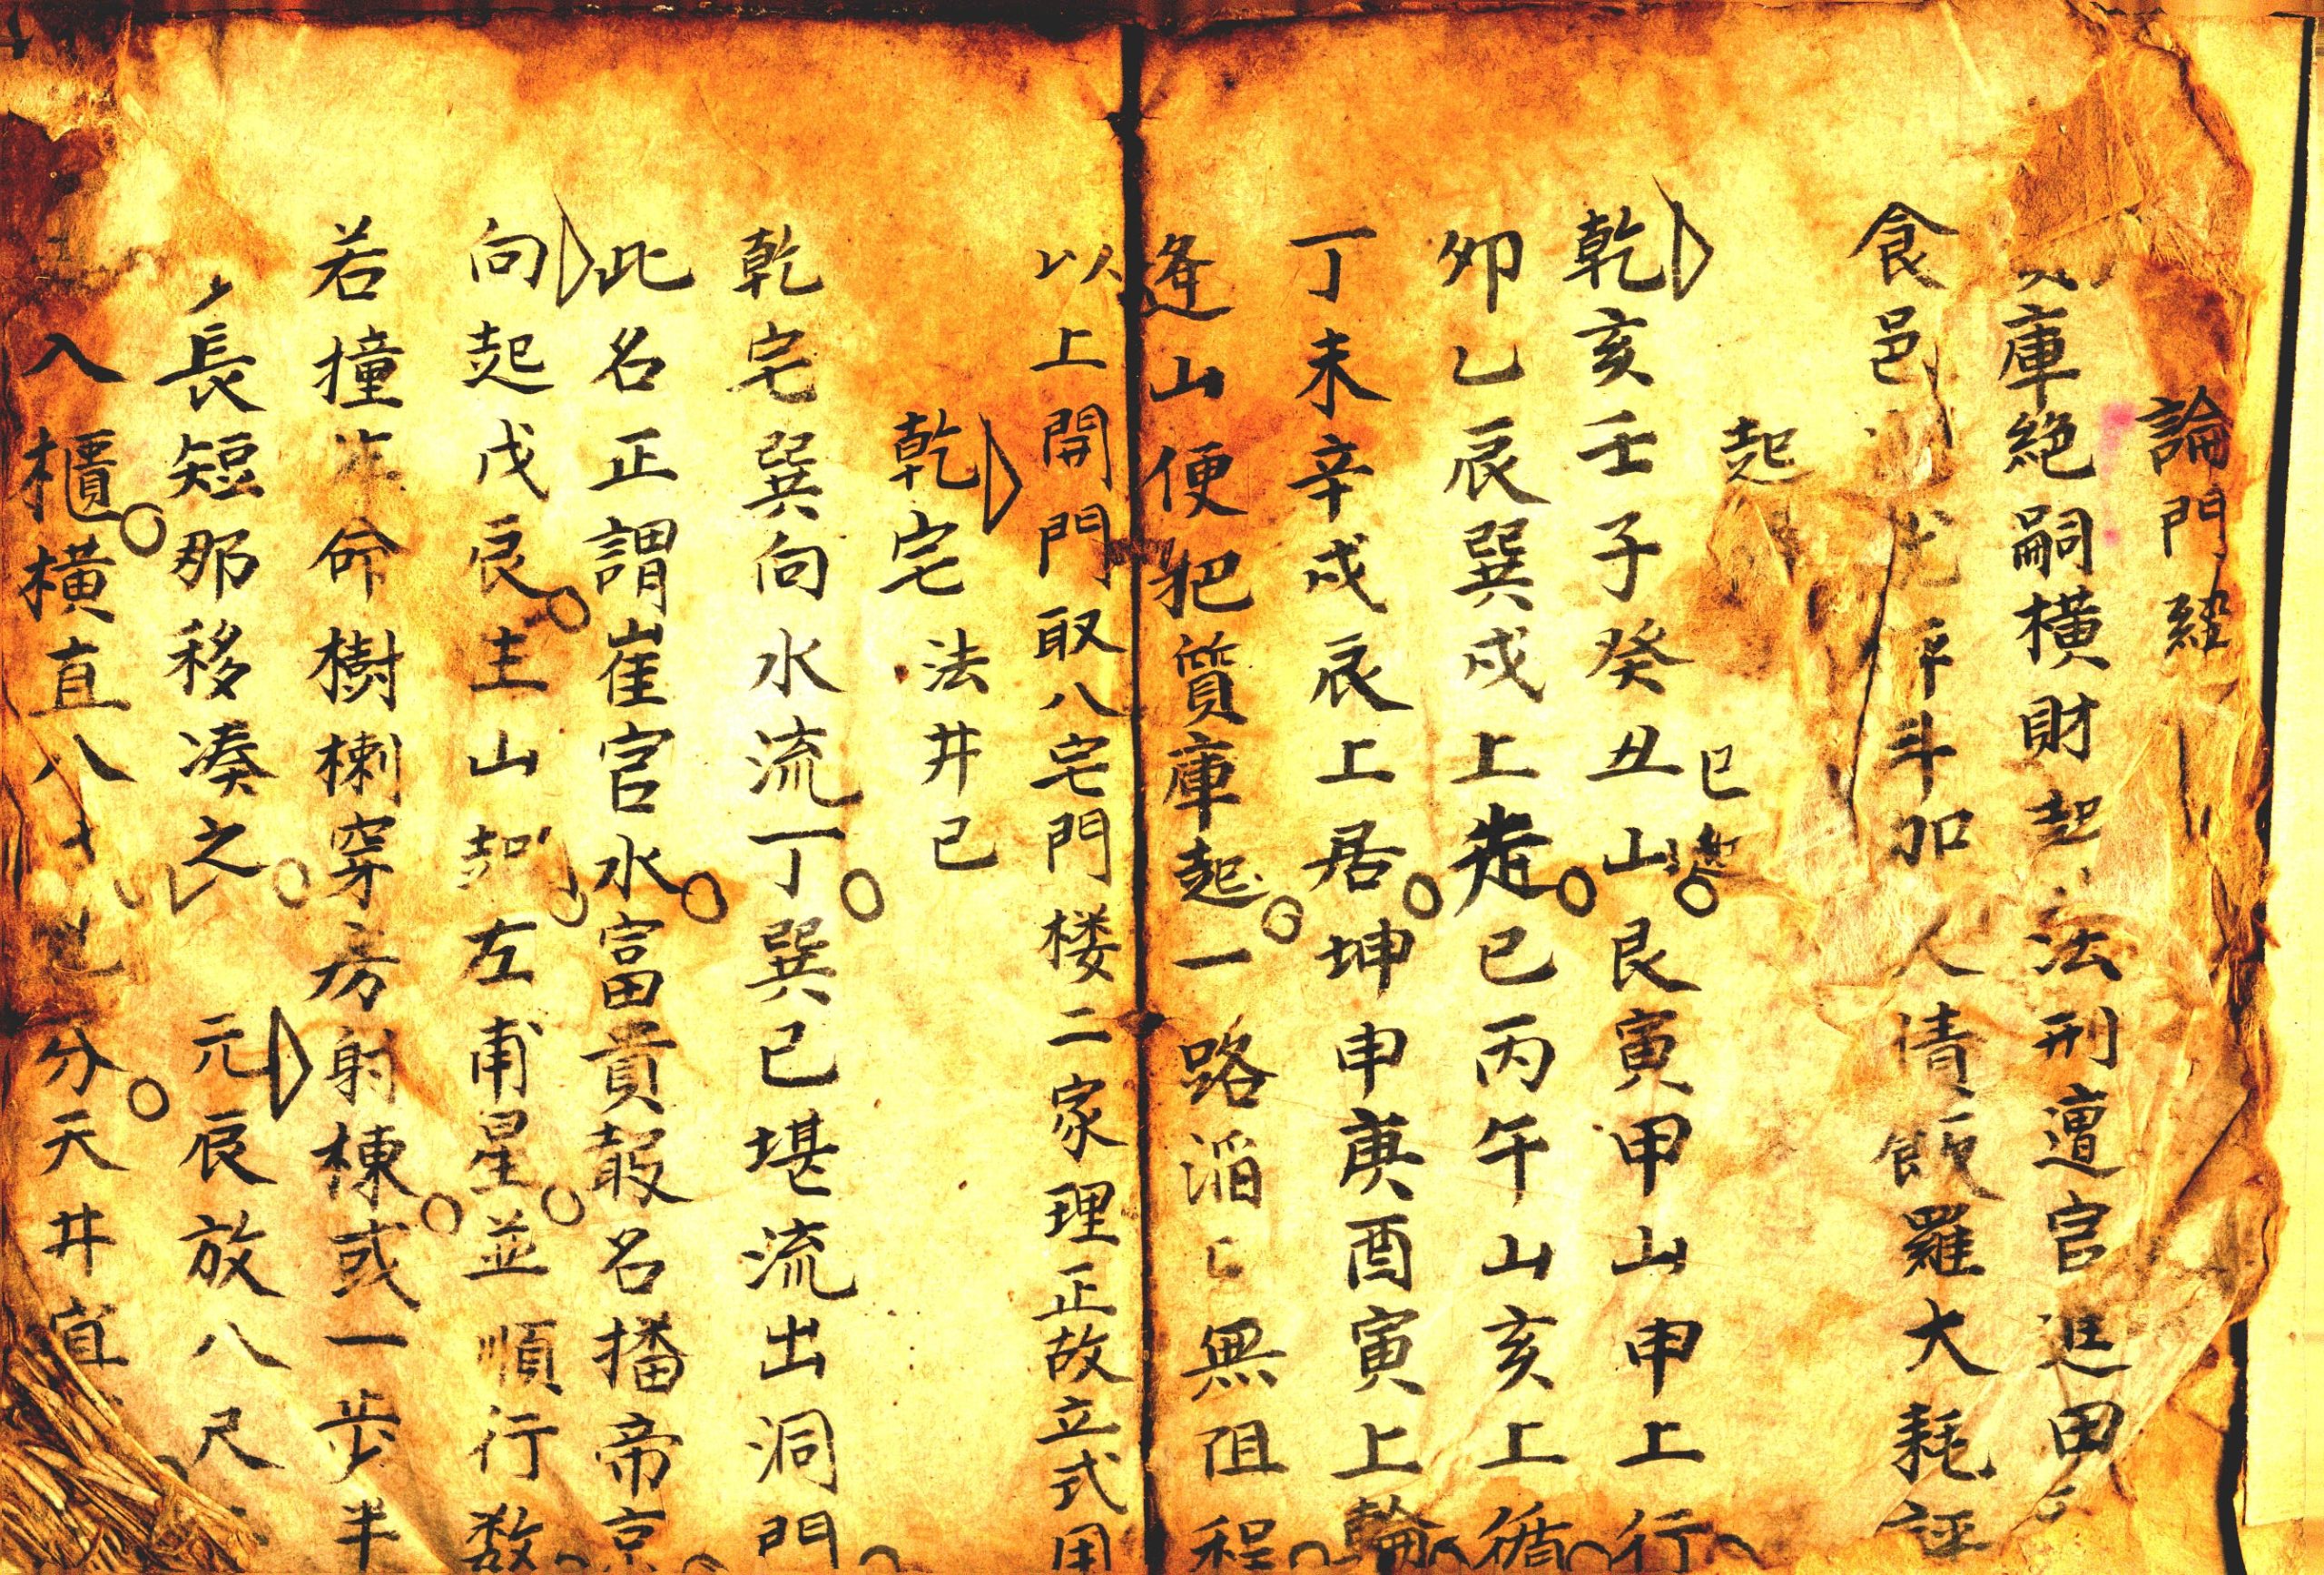 論門經
庫絶嗣橫財起法刑遭官進田
食邑 斗加人情飯羅大耗
起 巳
乾亥壬子癸丑山艮寅甲山申上行
夘乙辰巽戍上巳丙午山亥上循
丁未辛戍辰上居坤申庚酉寅上輪
逢山便把質庫起一路滔〻無阻程
以上開門取八宅門楼二家理正故立式用
乾宅法井已
乾宅巽向水流丁巽巳堪流出洞門
此名正謂崔官水富貴報名播帝京
向起戊艮主山起左甫星並順行数
若撞命樹樹穿房射棟或一步半
長短那移凑之 元辰放八尺
入櫃橫直八 分天井宜